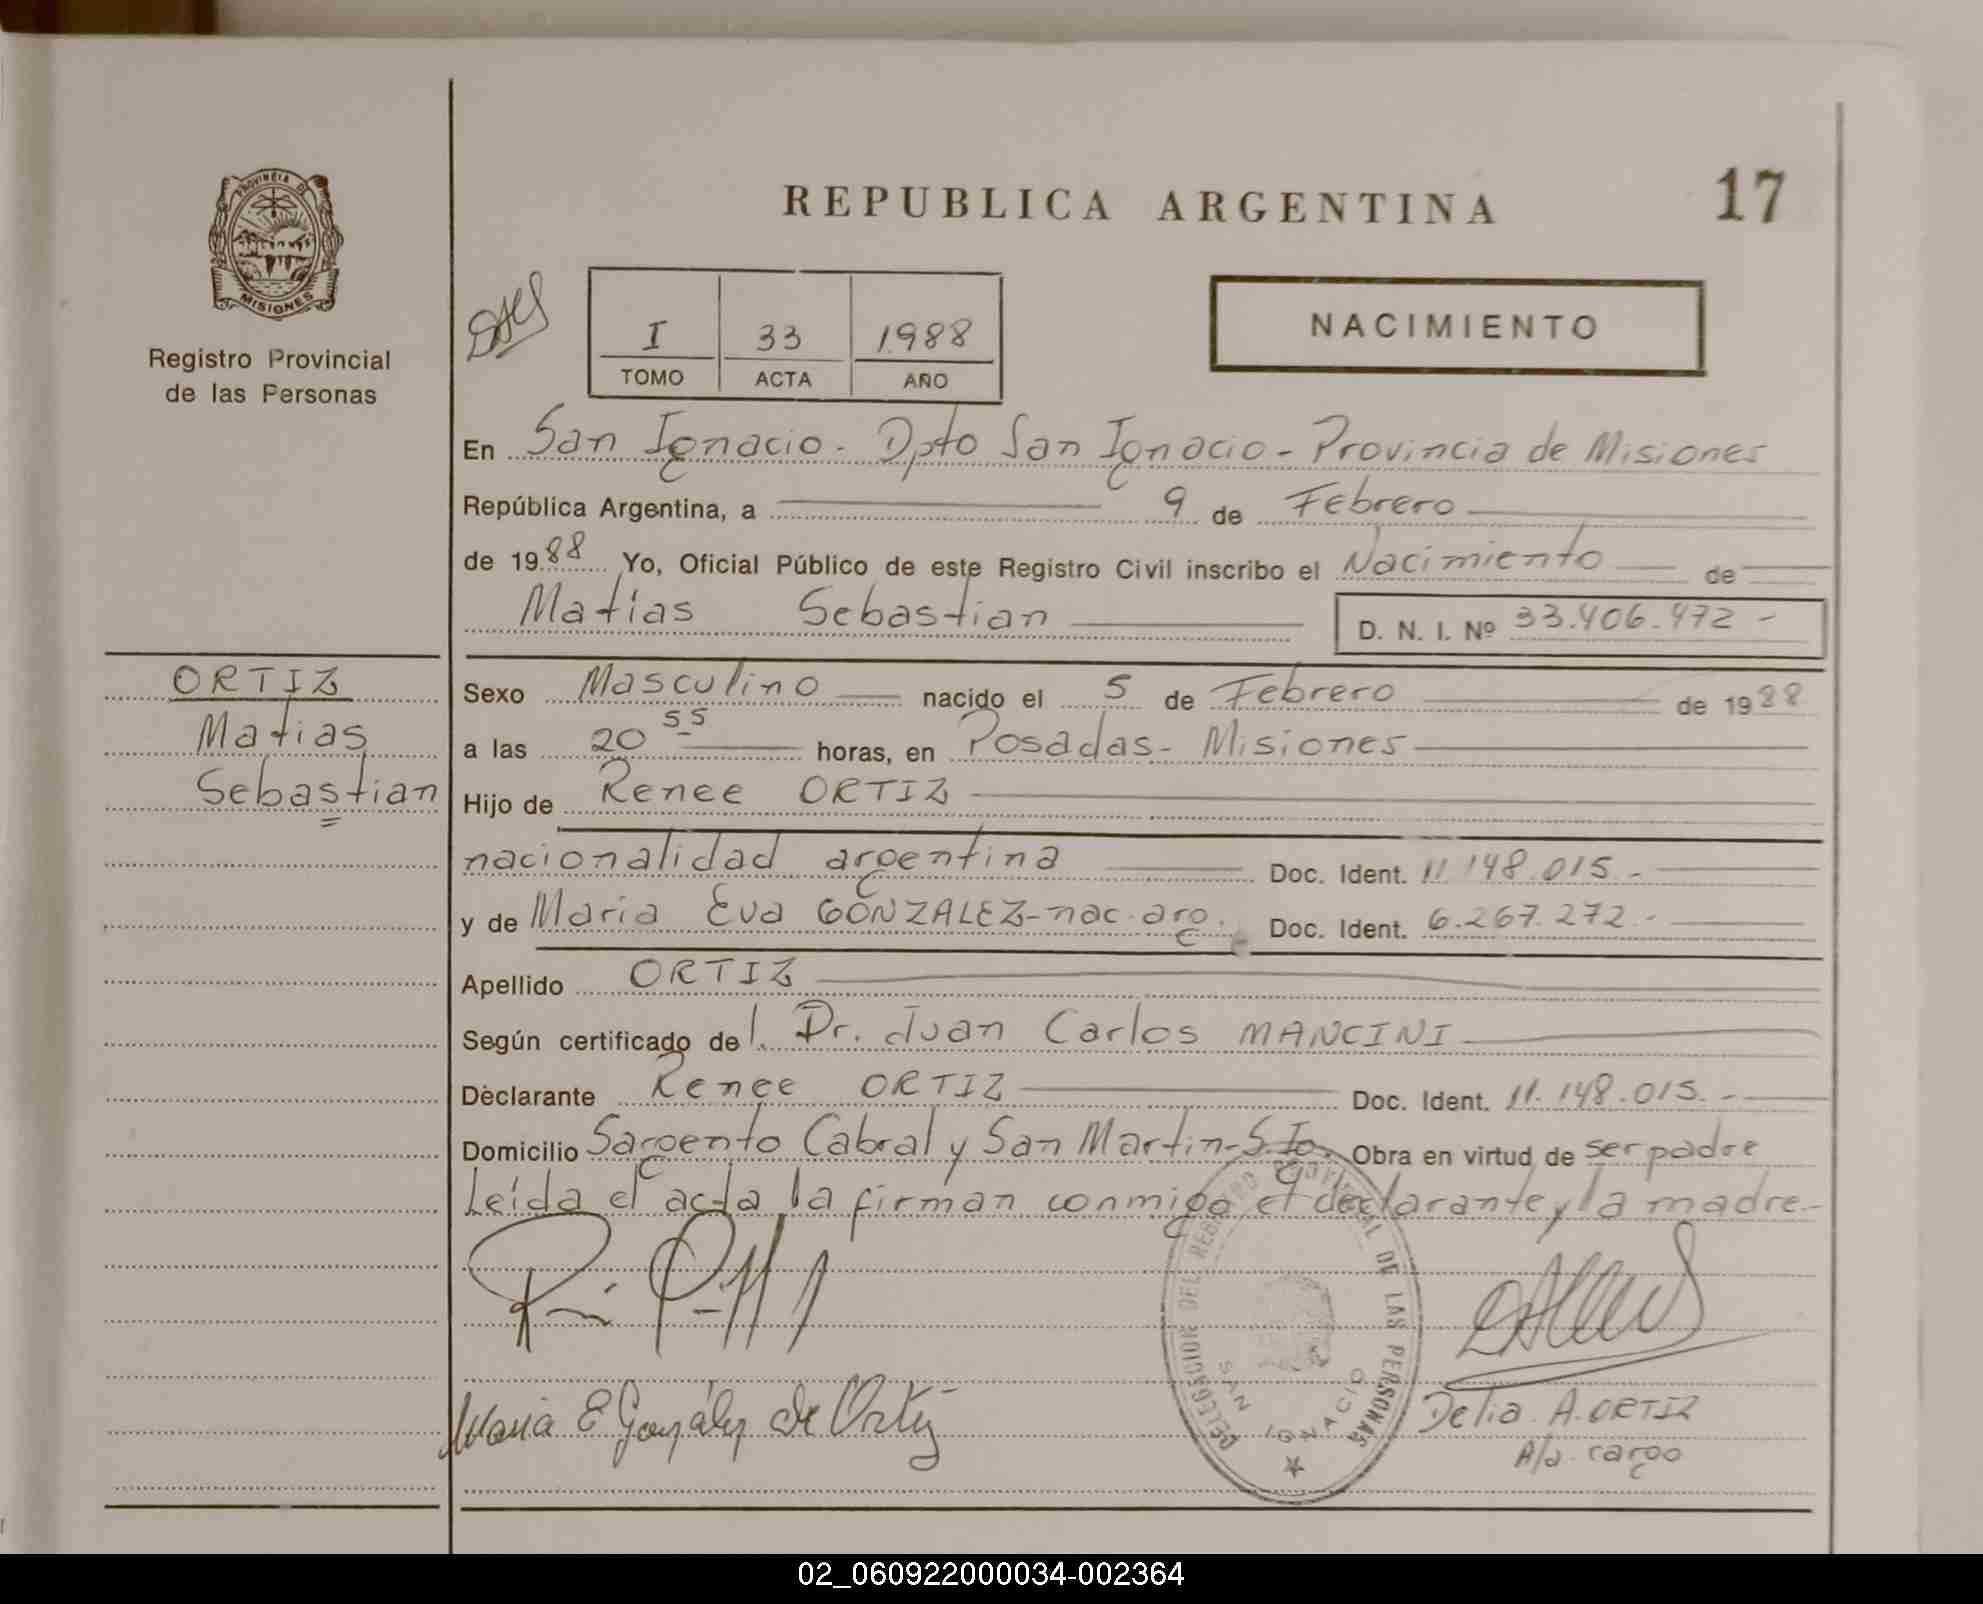 REPUBLICA ARGENTINA
17
PROVINCIA DE
MISIONES
Registro Provincial
de las Personas
I 33 1988
TOMO ACTA AÑO
NACIMIENTO
En San Ignacio - Dpto San Ignacio - Provincia de Misiones
República Argentina, a 9 de Febrero
de 1988 Yo, Oficial Público de este Registro Civil inscribo el Nacimiento de
Matías Sebastian D. N. I. Nº 33.406.472 -
ORTIZ
Matias
Sebastian
Sexo Masculino nacido el 5 de Febrero de 1988
a las 20 55 horas, en Posadas - Misiones
Hijo de Renee ORTIZ
nacionalidad argentina Doc. Ident. 11.148.015 -
y de Maria Eva GONZALEZ - nac. arg. Doc. Ident. 6.267.272 -
Apellido ORTIZ
Según certificado del Dr. Juan Carlos MANCINI
Declarante Renee ORTIZ Doc. Ident. 11.148.015. -
Domicilio Sargento Cabral y San Martin - S. Ig. Obra en virtud de ser padre
Leída el acta la firman conmigo el declarante y la madre -
DELEGACION DEL REGISTRO PROVINCIAL DE LAS PERSONAS
SAN IGNACIO
Maria E González de Ortiz
Delia A. ORTIZ
A/a. cargo
02_060922000034-002364